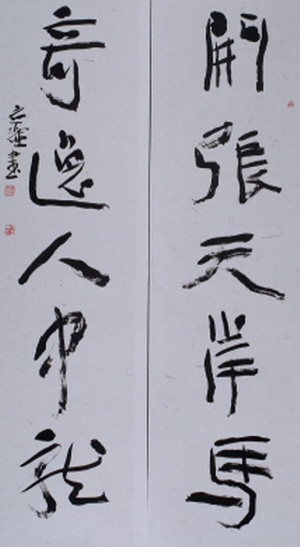 開張天岸馬
奇逸人中龍
書